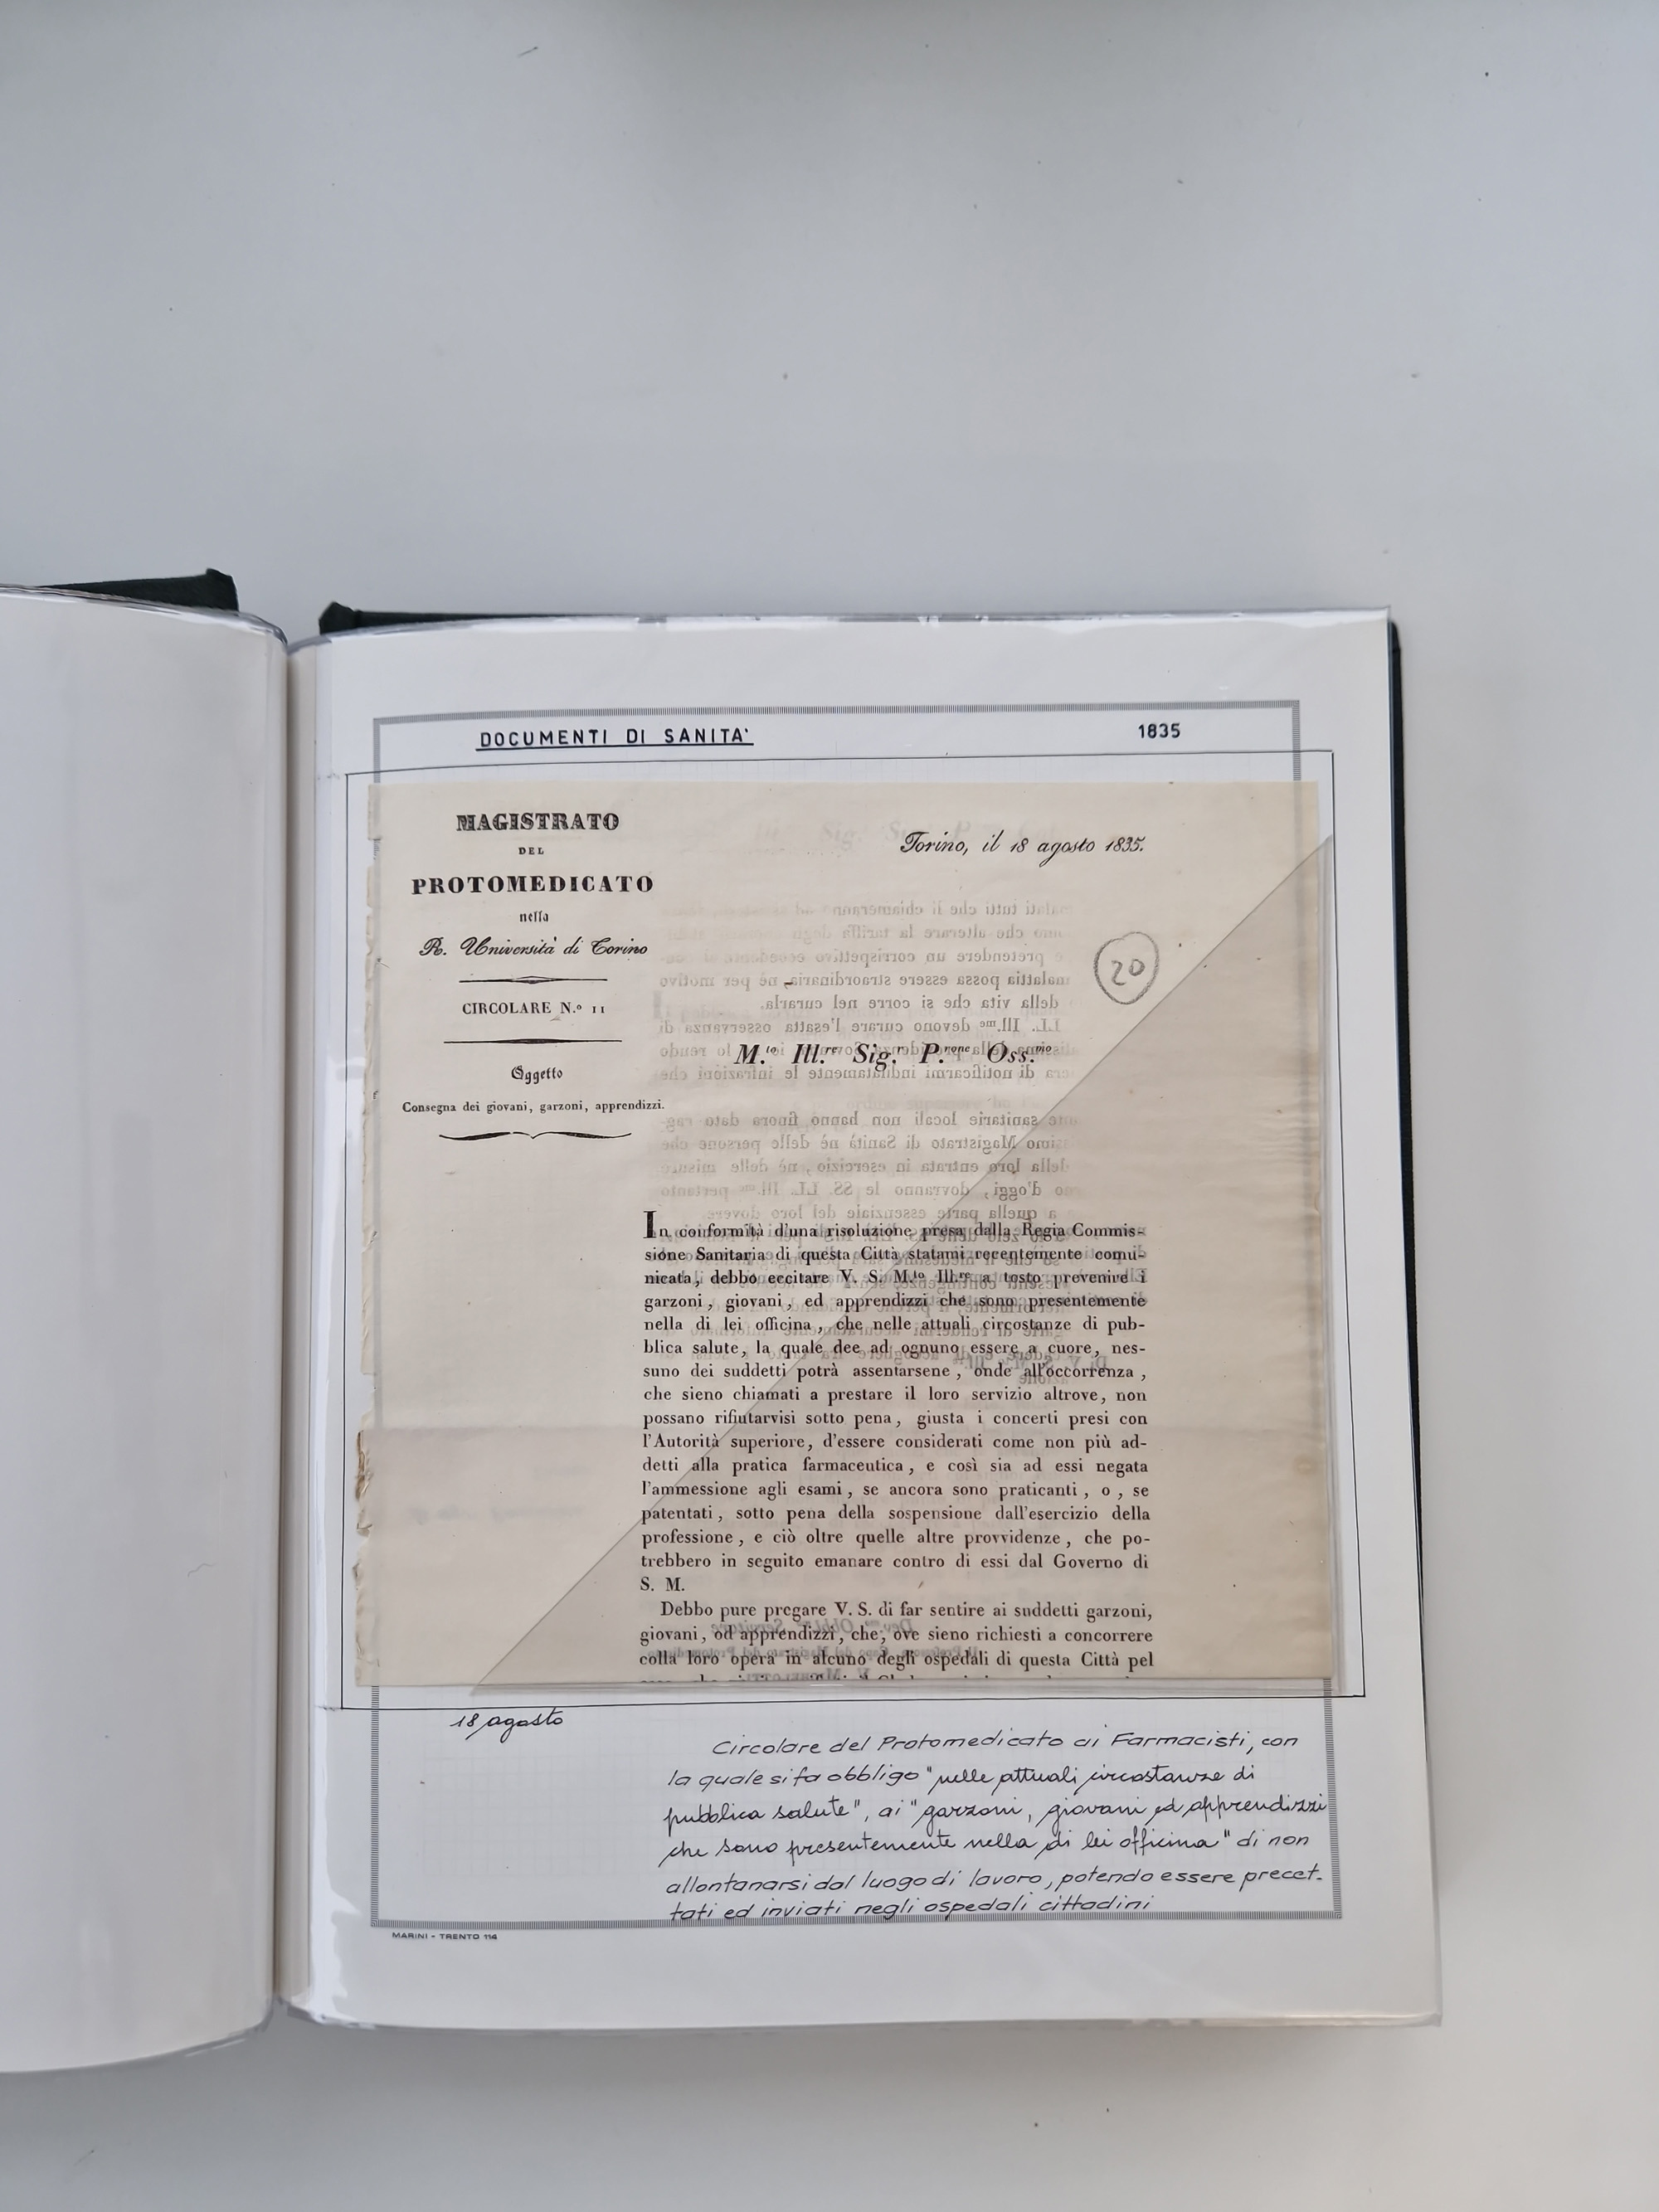 DOCUMENTI DI SANITA'
1835
MAGISTRATO
DEL
PROTOMEDICATO
nella
R. Università di Torino
CIRCOLARE N.º 11
Oggetto
Consegna dei giovani, garzoni, apprendizzi.
Torino, il 18 agosto 1835.
20
M.to Ill.re Sig.r P.rone Oss.mo
In conformità d'una risoluzione presa dalla Regia Commis-
sione Sanitaria di questa Città statami recentemente comu-
nicata, debbo eccitare V. S. M.to Ill.re a tosto prevenire i
garzoni, giovani, ed apprendizzi che sono presentemente
nella di lei officina, che nelle attuali circostanze di pub-
blica salute, la quale dee ad ognuno essere a cuore, nes-
suno dei suddetti potrà assentarsene, onde all'occorrenza,
che sieno chiamati a prestare il loro servizio altrove, non
possano rifiutarvisi sotto pena, giusta i concerti presi con
l'Autorità superiore, d'essere considerati come non più ad-
detti alla pratica farmaceutica, e così sia ad essi negata
l'ammessione agli esami, se ancora sono praticanti, o, se
patentati, sotto pena della sospensione dall'esercizio della
professione, e ciò oltre quelle altre provvidenze, che po-
trebbero in seguito emanare contro di essi dal Governo di
S. M.
Debbo pure pregare V. S. di far sentire ai suddetti garzoni,
giovani, od apprendizzi, che, ove sieno richiesti a concorrere
colla loro opera in alcuno degli ospedali di questa Città pel
18 agosto
Circolare del Protomedicato ai Farmacisti, con
la quale si fa obbligo "nelle attuali circostanze di
pubblica salute", ai "garzoni, giovani ed apprendizzi
che sono presentemente nella di lei officina" di non
allontanarsi dal luogo di lavoro, potendo essere precet-
tati ed inviati negli ospedali cittadini
MARINI - TRENTO 114